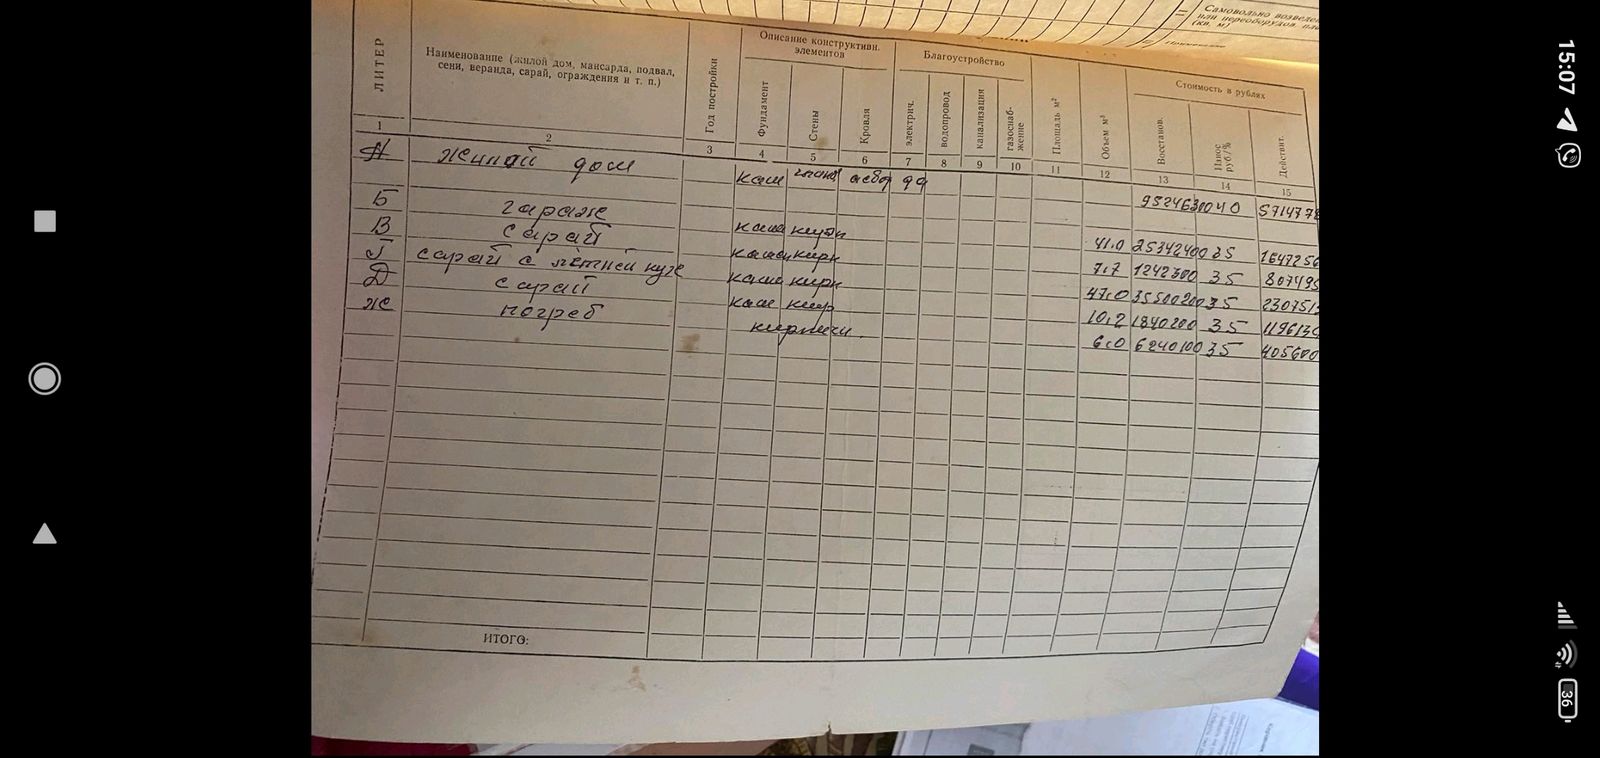 Самовольно возведе
или переоборудов. пло
(кв. м)
ЛИТЕР
Наименование (жилой дом, мансарда, подвал,
сени, веранда, сарай, ограждения и т. п.)
Год постройки
Описание конструктивн.
элементов
Фундамент
Стены
Кровля
Благоустройство
электрич.
водопровод
канализация
газоснаб-
жение
Площадь м²
Объем м³
Стоимость в рублях
Восстанов.
Износ
руб./%
Действит.
1 2 3 4 5 6 7 8 9 10 11 12 13 14 15
А жилой дом кам 95246300 40 5714778
Б гараж кам 41.0 25342400 35 1647256
В сарай кам кирп 7,7 1242300 35 807495
Г сарай с летней кухе кам кирп 47.0 35500200 35 2307513
Д сарай кам кирп 10,2 1840200 35 119613
Ж погреб кирпичн. 6.0 6240100 35 405600
ИТОГО:
15:07
36